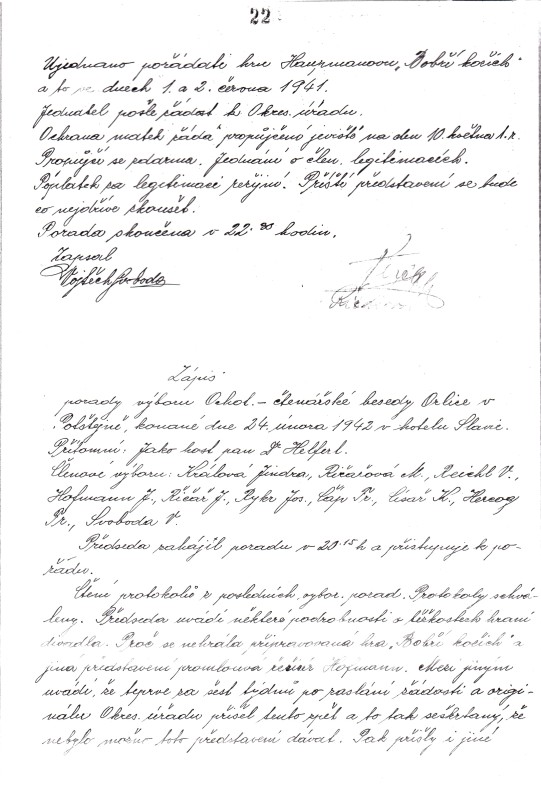 22
Ujednano pořádati hru Hauptmanovu „Bobří kožich"
a to ve dnech 1. a 2. června 1941.
Jednatel pošle žádost k Okres. úřadu.
Ochrana matek žádá propůjčeno jeviště na den 10. května t. r.
Propůjčí se zdarma. Jednání o člen. legitimacích.
Poplatek za legitimaci režijní. Příští představení se bude
co nejdříve zkoušet.
Porada skončena v 22.30 hodin.
Zapsal
Vojtěch Svoboda
Zápis
porady výboru Ochot. – čtenářské besedy Orlice v
Potštejně, konané dne 24. února 1942 v hotelu Slavie.
Přítomni: Jako host pan Dr Helfert.
Členové výboru: Králová Jindra, Říčařová M., Reichl V.,
Hofmann J., Říčař J., Rykr Jos., Čáp Fr., Císař K., Hercog
Fr., Svoboda V.
Předseda zahájil poradu v 20.15 h a přistupuje k po-
řadu.
Čtení protokolů z posledních výbor. porad. Protokoly schvá-
leny. Předseda uvádí některé podrobnosti o těžkostech hraní
divadla. Proč se nehrála připravovaná hra „Bobří kožich" a
jiná představení promlouvá režisér Hofmann. Mezi jiným
uvádí, že teprve za šest týdnů po zaslání žádosti a origi-
nálu Okres. úřadu přišel tento zpět a to tak seškrtaný, že
nebylo možno toto představení dávat. Pak přišly i jiné